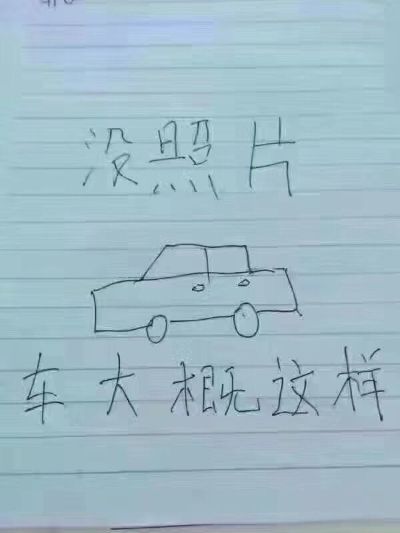 没照片
车大概这样